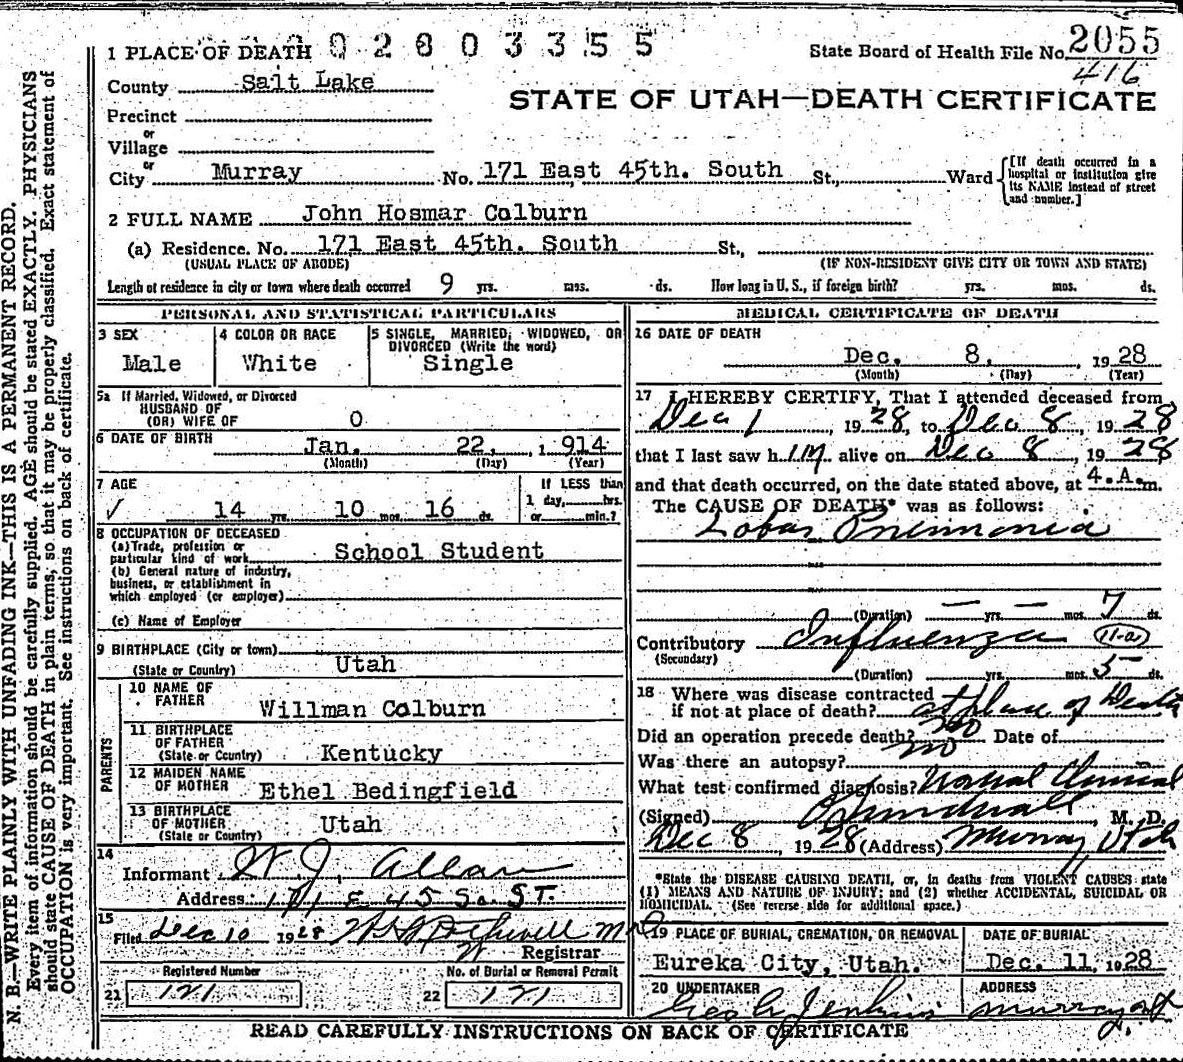 N. B.—WRITE PLAINLY WITH UNFADING INK—THIS IS A PERMANENT RECORD.
Every item of information should be carefully supplied. AGE should be stated EXACTLY. PHYSICIANS
should state CAUSE OF DEATH in plain terms, so that it may be properly classified. Exact statement of
OCCUPATION is very important. See instructions on back of certificate.
1 PLACE OF DEATH 0 0 2 8 0 3 3 5 5
State Board of Health File No. 2055
416
County Salt Lake
STATE OF UTAH—DEATH CERTIFICATE
Precinct
or
Village
or
City Murray No. 171 East 45th. South St., Ward
[If death occurred in a
hospital or institution give
its NAME instead of street
and number.]
2 FULL NAME John Hosmar Colburn
(a) Residence. No. 171 East 45th. South St.,
(USUAL PLACE OF ABODE) (IF NON-RESIDENT GIVE CITY OR TOWN AND STATE)
Length of residence in city or town where death occurred 9 yrs. mos. ds. How long in U. S., if foreign birth? yrs. mos. ds.
PERSONAL AND STATISTICAL PARTICULARS
3 SEX
Male
4 COLOR OR RACE
White
5 SINGLE, MARRIED, WIDOWED, OR
DIVORCED (Write the word)
Single
5a If Married, Widowed, or Divorced
HUSBAND OF
(OR) WIFE OF O
6 DATE OF BIRTH Jan. 22, 1914
(Month) (Day) (Year)
7 AGE
✓ 14 yrs. 10 mos. 16 ds.
If LESS than
1 day, hrs.
or min.?
8 OCCUPATION OF DECEASED
(a) Trade, profession or
particular kind of work School Student
(b) General nature of industry,
business, or establishment in
which employed (or employer)
(c) Name of Employer
9 BIRTHPLACE (City or town)
(State or Country) Utah
PARENTS
10 NAME OF
FATHER Willman Colburn
11 BIRTHPLACE
OF FATHER
(State or Country) Kentucky
12 MAIDEN NAME
OF MOTHER Ethel Bedingfield
13 BIRTHPLACE
OF MOTHER
(State or Country) Utah
14
Informant W. J. Allan
Address 171 E 45 So. ST.
15
Filed Dec 10 1928
Registrar
Registered Number
21 121
No. of Burial or Removal Permit
22 121
MEDICAL CERTIFICATE OF DEATH
16 DATE OF DEATH
Dec. 8, 1928
(Month) (Day) (Year)
17 I HEREBY CERTIFY, That I attended deceased from
Dec 1, 1928, to Dec 8, 1928
that I last saw him alive on Dec 8, 1928
and that death occurred, on the date stated above, at 4.A.m.
The CAUSE OF DEATH* was as follows:
Lobar Pneumonia
(Duration) — yrs. — mos. 7 ds.
Contributory Influenza 11-a
(Secondary)
(Duration) yrs. mos. 5 ds.
18 Where was disease contracted
if not at place of death? at place of Death
Did an operation precede death? no Date of
Was there an autopsy? no
What test confirmed diagnosis? Clinical
(Signed) M. D.
Dec 8 1928 (Address) Murray Utah
*State the DISEASE CAUSING DEATH, or, in deaths from VIOLENT CAUSES state
(1) MEANS AND NATURE OF INJURY; and (2) whether ACCIDENTAL, SUICIDAL OR
HOMICIDAL. (See reverse side for additional space.)
19 PLACE OF BURIAL, CREMATION, OR REMOVAL
Eureka City, Utah.
DATE OF BURIAL
Dec. 11, 1928
20 UNDERTAKER
Geo A Jenkins
ADDRESS
Murray Ut.
READ CAREFULLY INSTRUCTIONS ON BACK OF CERTIFICATE